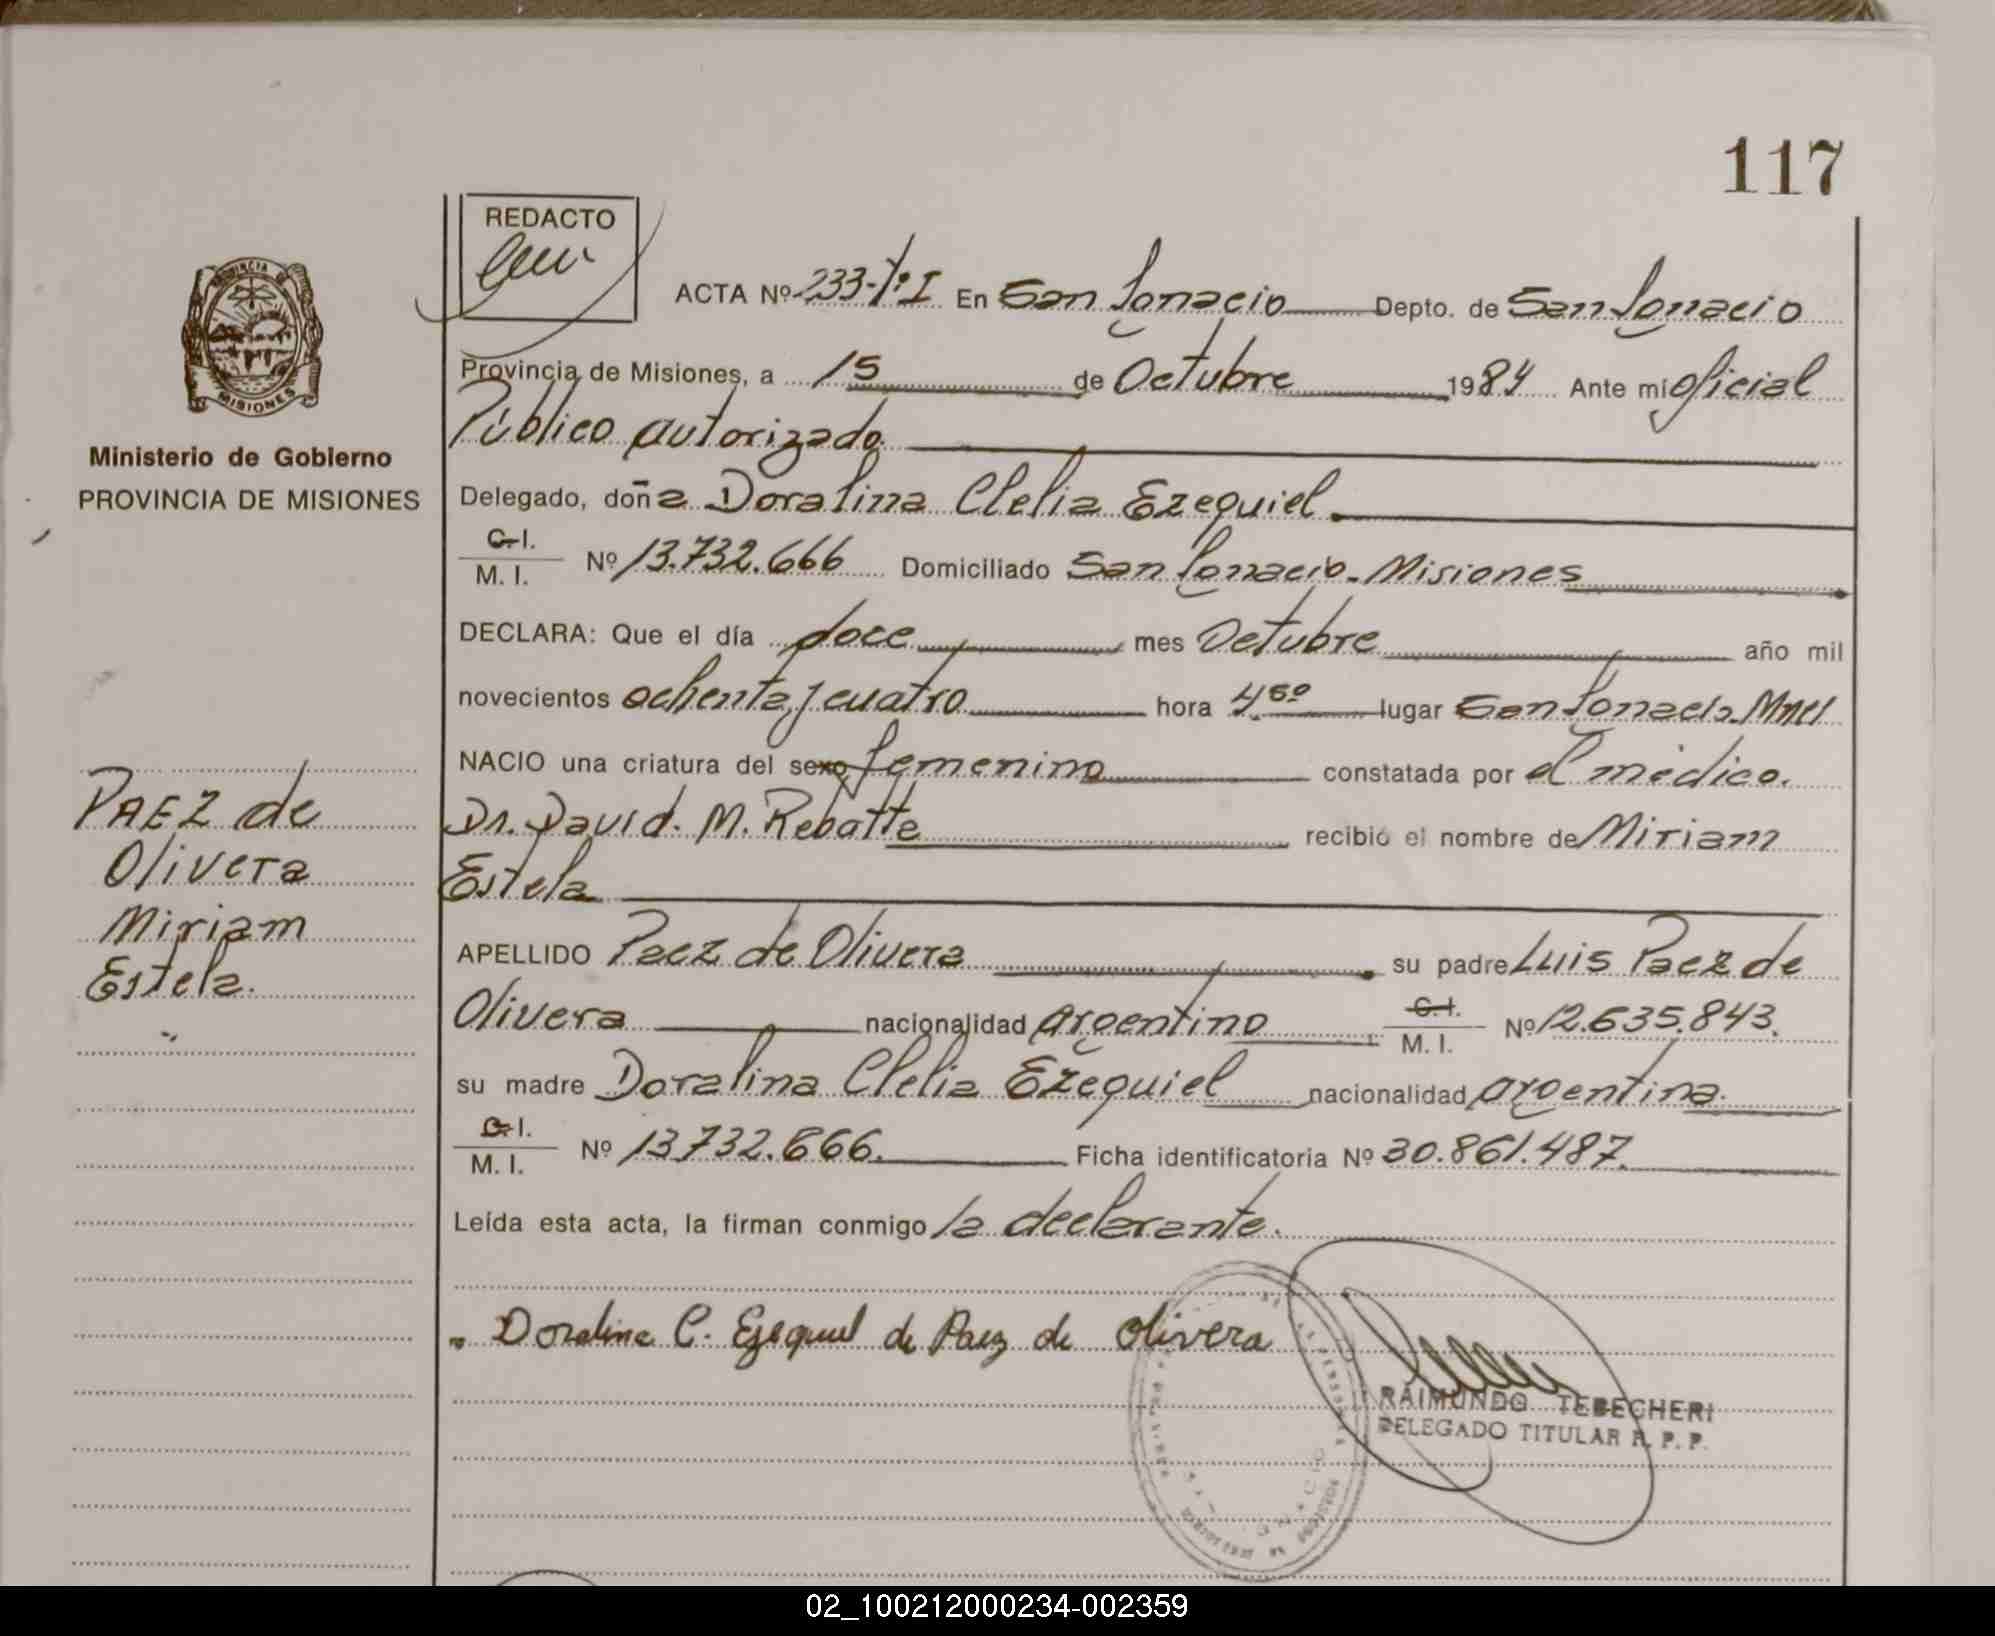 117
REDACTO
ACTA Nº 233-Tº I En San Ignacio Depto. de San Ignacio
Provincia de Misiones, a 15 de Octubre 1984 Ante mi oficial
Público autorizado
Delegado, doña Doralina Clelia Ezequiel
C.I.
M. I. Nº 13.732.666 Domiciliado San Ignacio-Misiones
DECLARA: Que el día doce mes Octubre año mil
novecientos ochenta y cuatro hora 4,50 lugar San Ignacio Mnes
NACIO una criatura del sexo femenino constatada por el médico.
Dr. David. M. Rebatte recibió el nombre de Miriam
Estela
APELLIDO Paez de Olivera su padre Luis Paez de
Olivera nacionalidad argentino C.I. M. I. Nº 12.635.843.
su madre Doralina Clelia Ezequiel nacionalidad argentina.
C.I.
M. I. Nº 13732.666. Ficha identificatoria Nº 30.861.487.
Leída esta acta, la firman conmigo la declarante.
Doralina C. Ezequiel de Paez de Olivera
RAIMUNDO TEBECHERI
DELEGADO TITULAR R. P. P.
PROVINCIA DE
MISIONES
Ministerio de Gobierno
PROVINCIA DE MISIONES
PAEZ de
Olivera
Miriam
Estela.
02_100212000234-002359